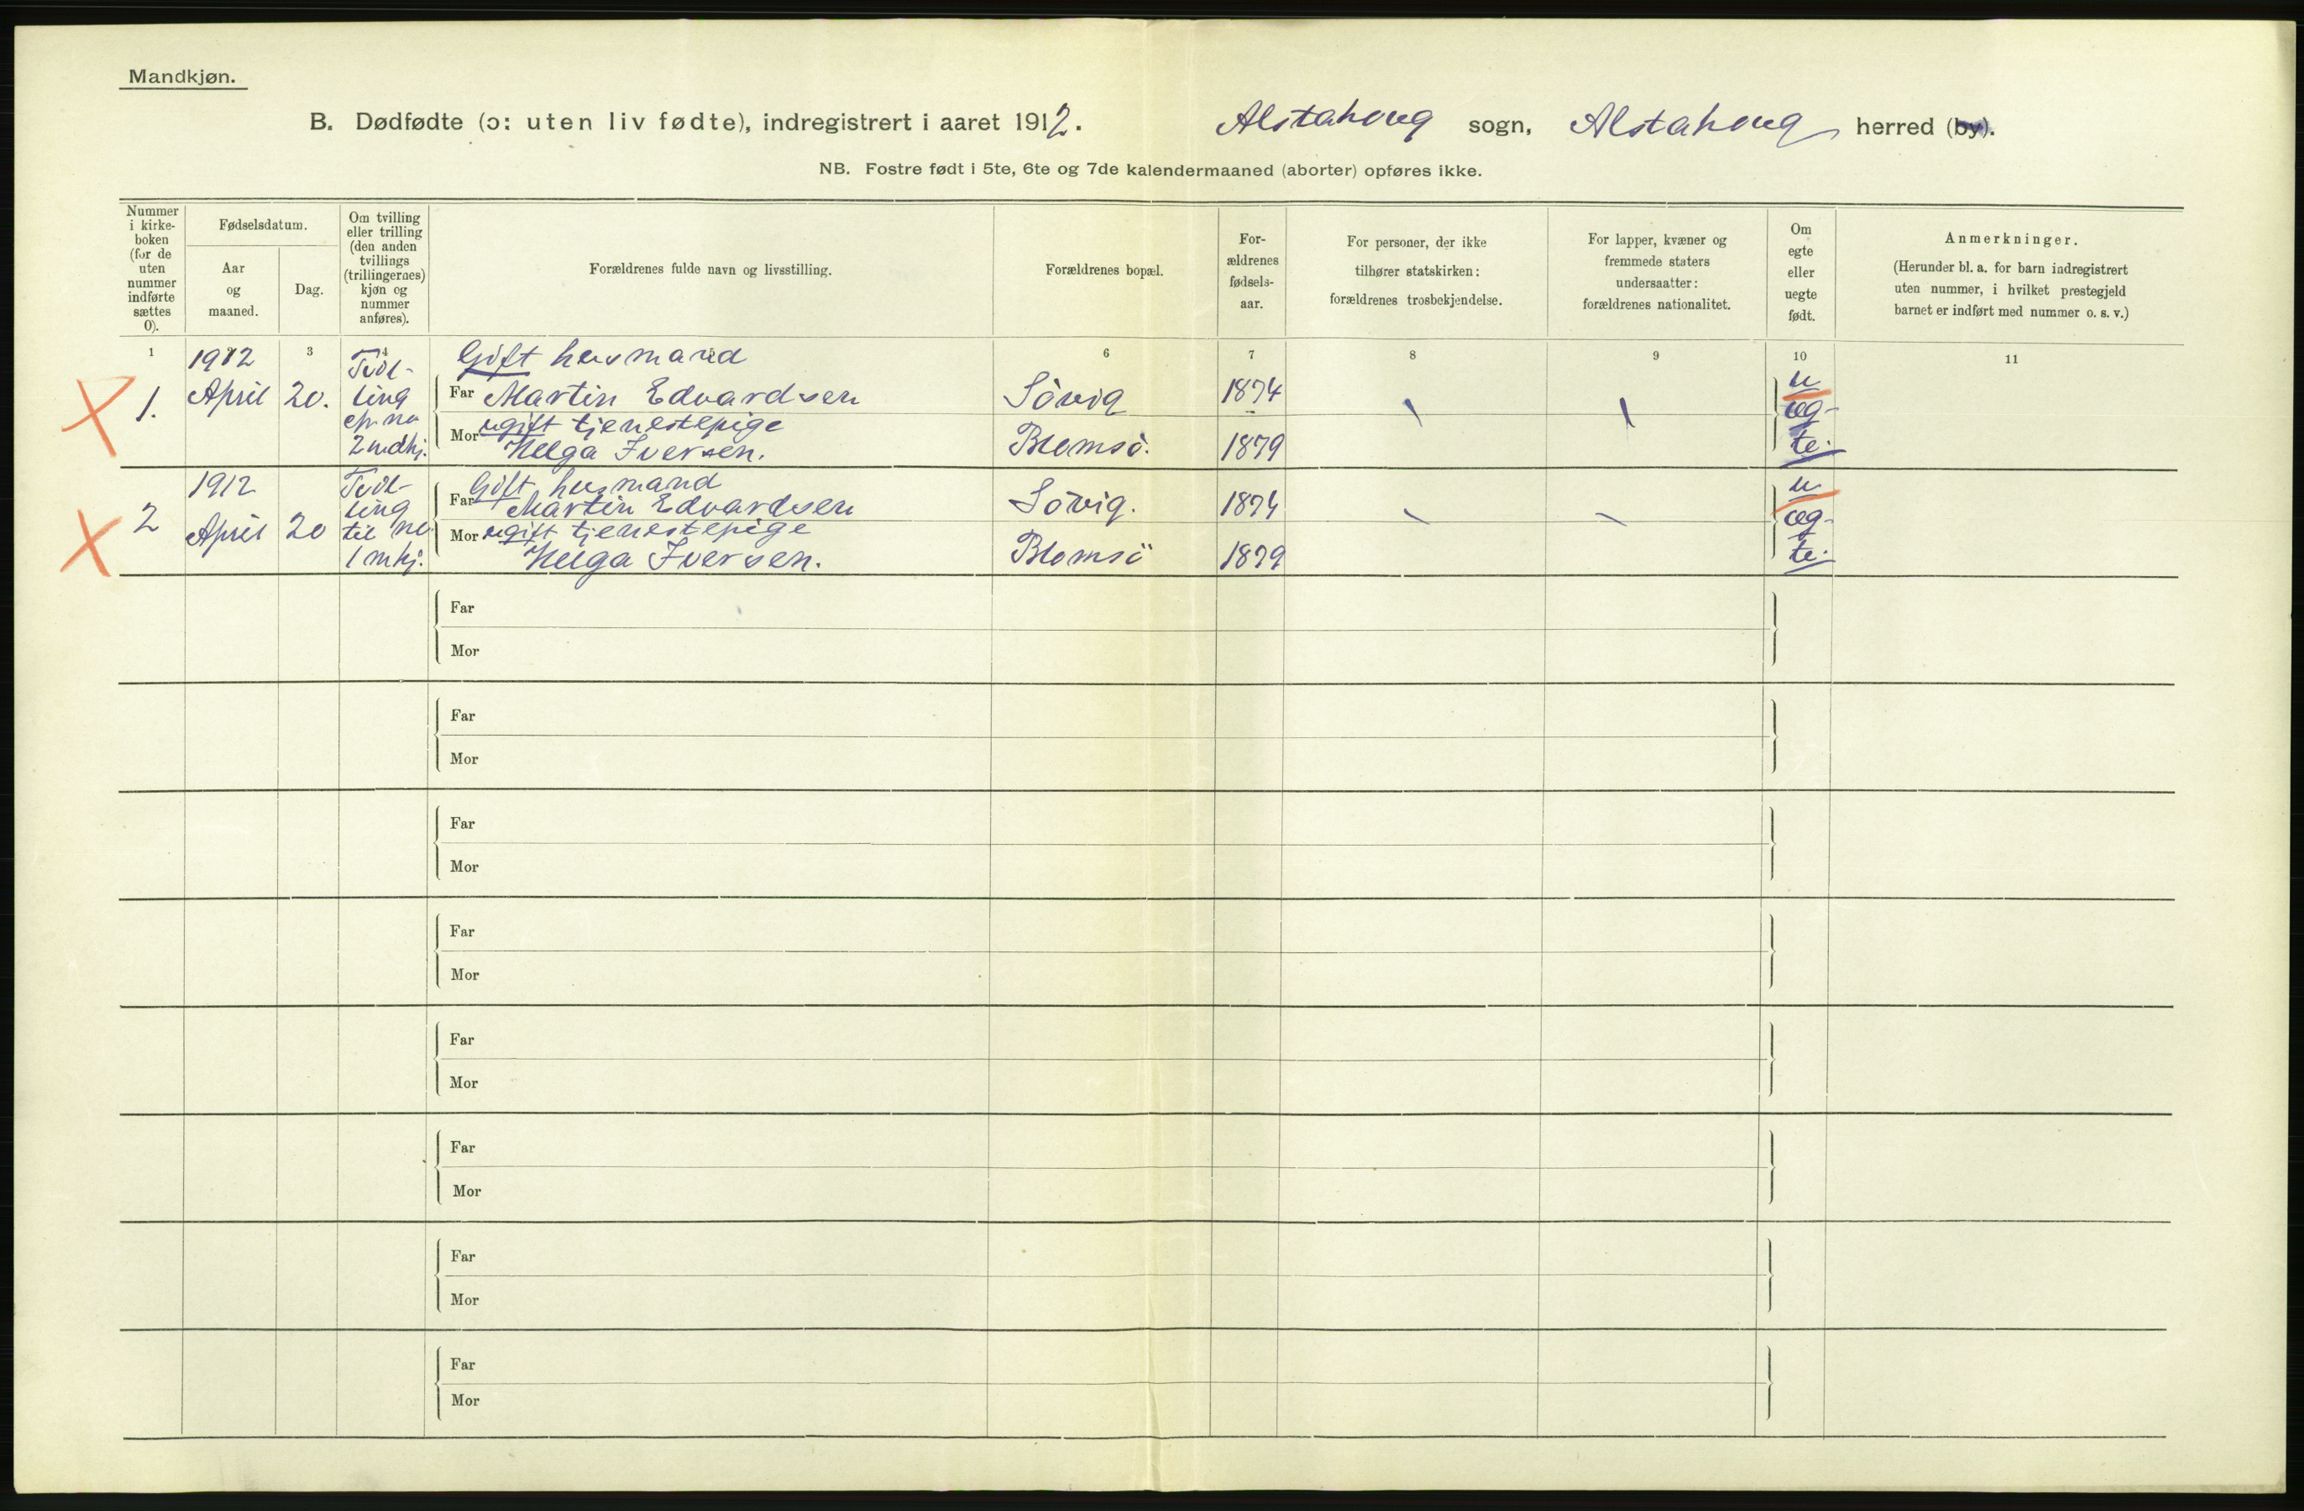 Mandkjøn.
B. Dødfødte (ɔ: uten liv fødte), indregistrert i aaret 1912. Alstahoug sogn, Alstahoug herred (by).
NB. Fostre født i 5te, 6te og 7de kalendermaaned (aborter) opføres ikke.
Nummer
i kirke-
boken
(for de
uten
nummer
indførte
sættes
0).
Fødselsdatum.
Aar
og
maaned.
Dag.
Om tvilling
eller trilling
(den anden
tvillings
(trillingernes)
kjøn og
nummer
anføres).
Forældrenes fulde navn og livsstilling.
Forældrenes bopæl.
For-
ældrenes
fødsels-
aar.
For personer, der ikke
tilhører statskirken:
forældrenes trosbekjendelse.
For lapper, kvæner og
fremmede staters
undersaatter:
forældrenes nationalitet.
Om
egte
eller
uegte
født.
Anmerkninger.
(Herunder bl. a. for barn indregistrert
uten nummer, i hvilket prestegjeld
barnet er indført med nummer o. s. v.)
1 3 4 6 7 8 9 10 11
1.
1912
April 20.
Tvil-
ling
2 mdkj.
Gift husmand
Far Martin Edvardsen Søvig 1874
ugift tjenestepige
Mor Helga Iversen. Blomsö. 1879
u
æg-
te.
2
1912
April 20
Tvil-
ling
til no
1 mkj.
Gift husmand
Far Martin Edvardsen Søvig. 1874
Mor ugift tjenestepige
Helga Iversen. Blomsö 1879
u
æg-
te.
Far
Mor
Far
Mor
Far
Mor
Far
Mor
Far
Mor
Far
Mor
Far
Mor
Far
Mor